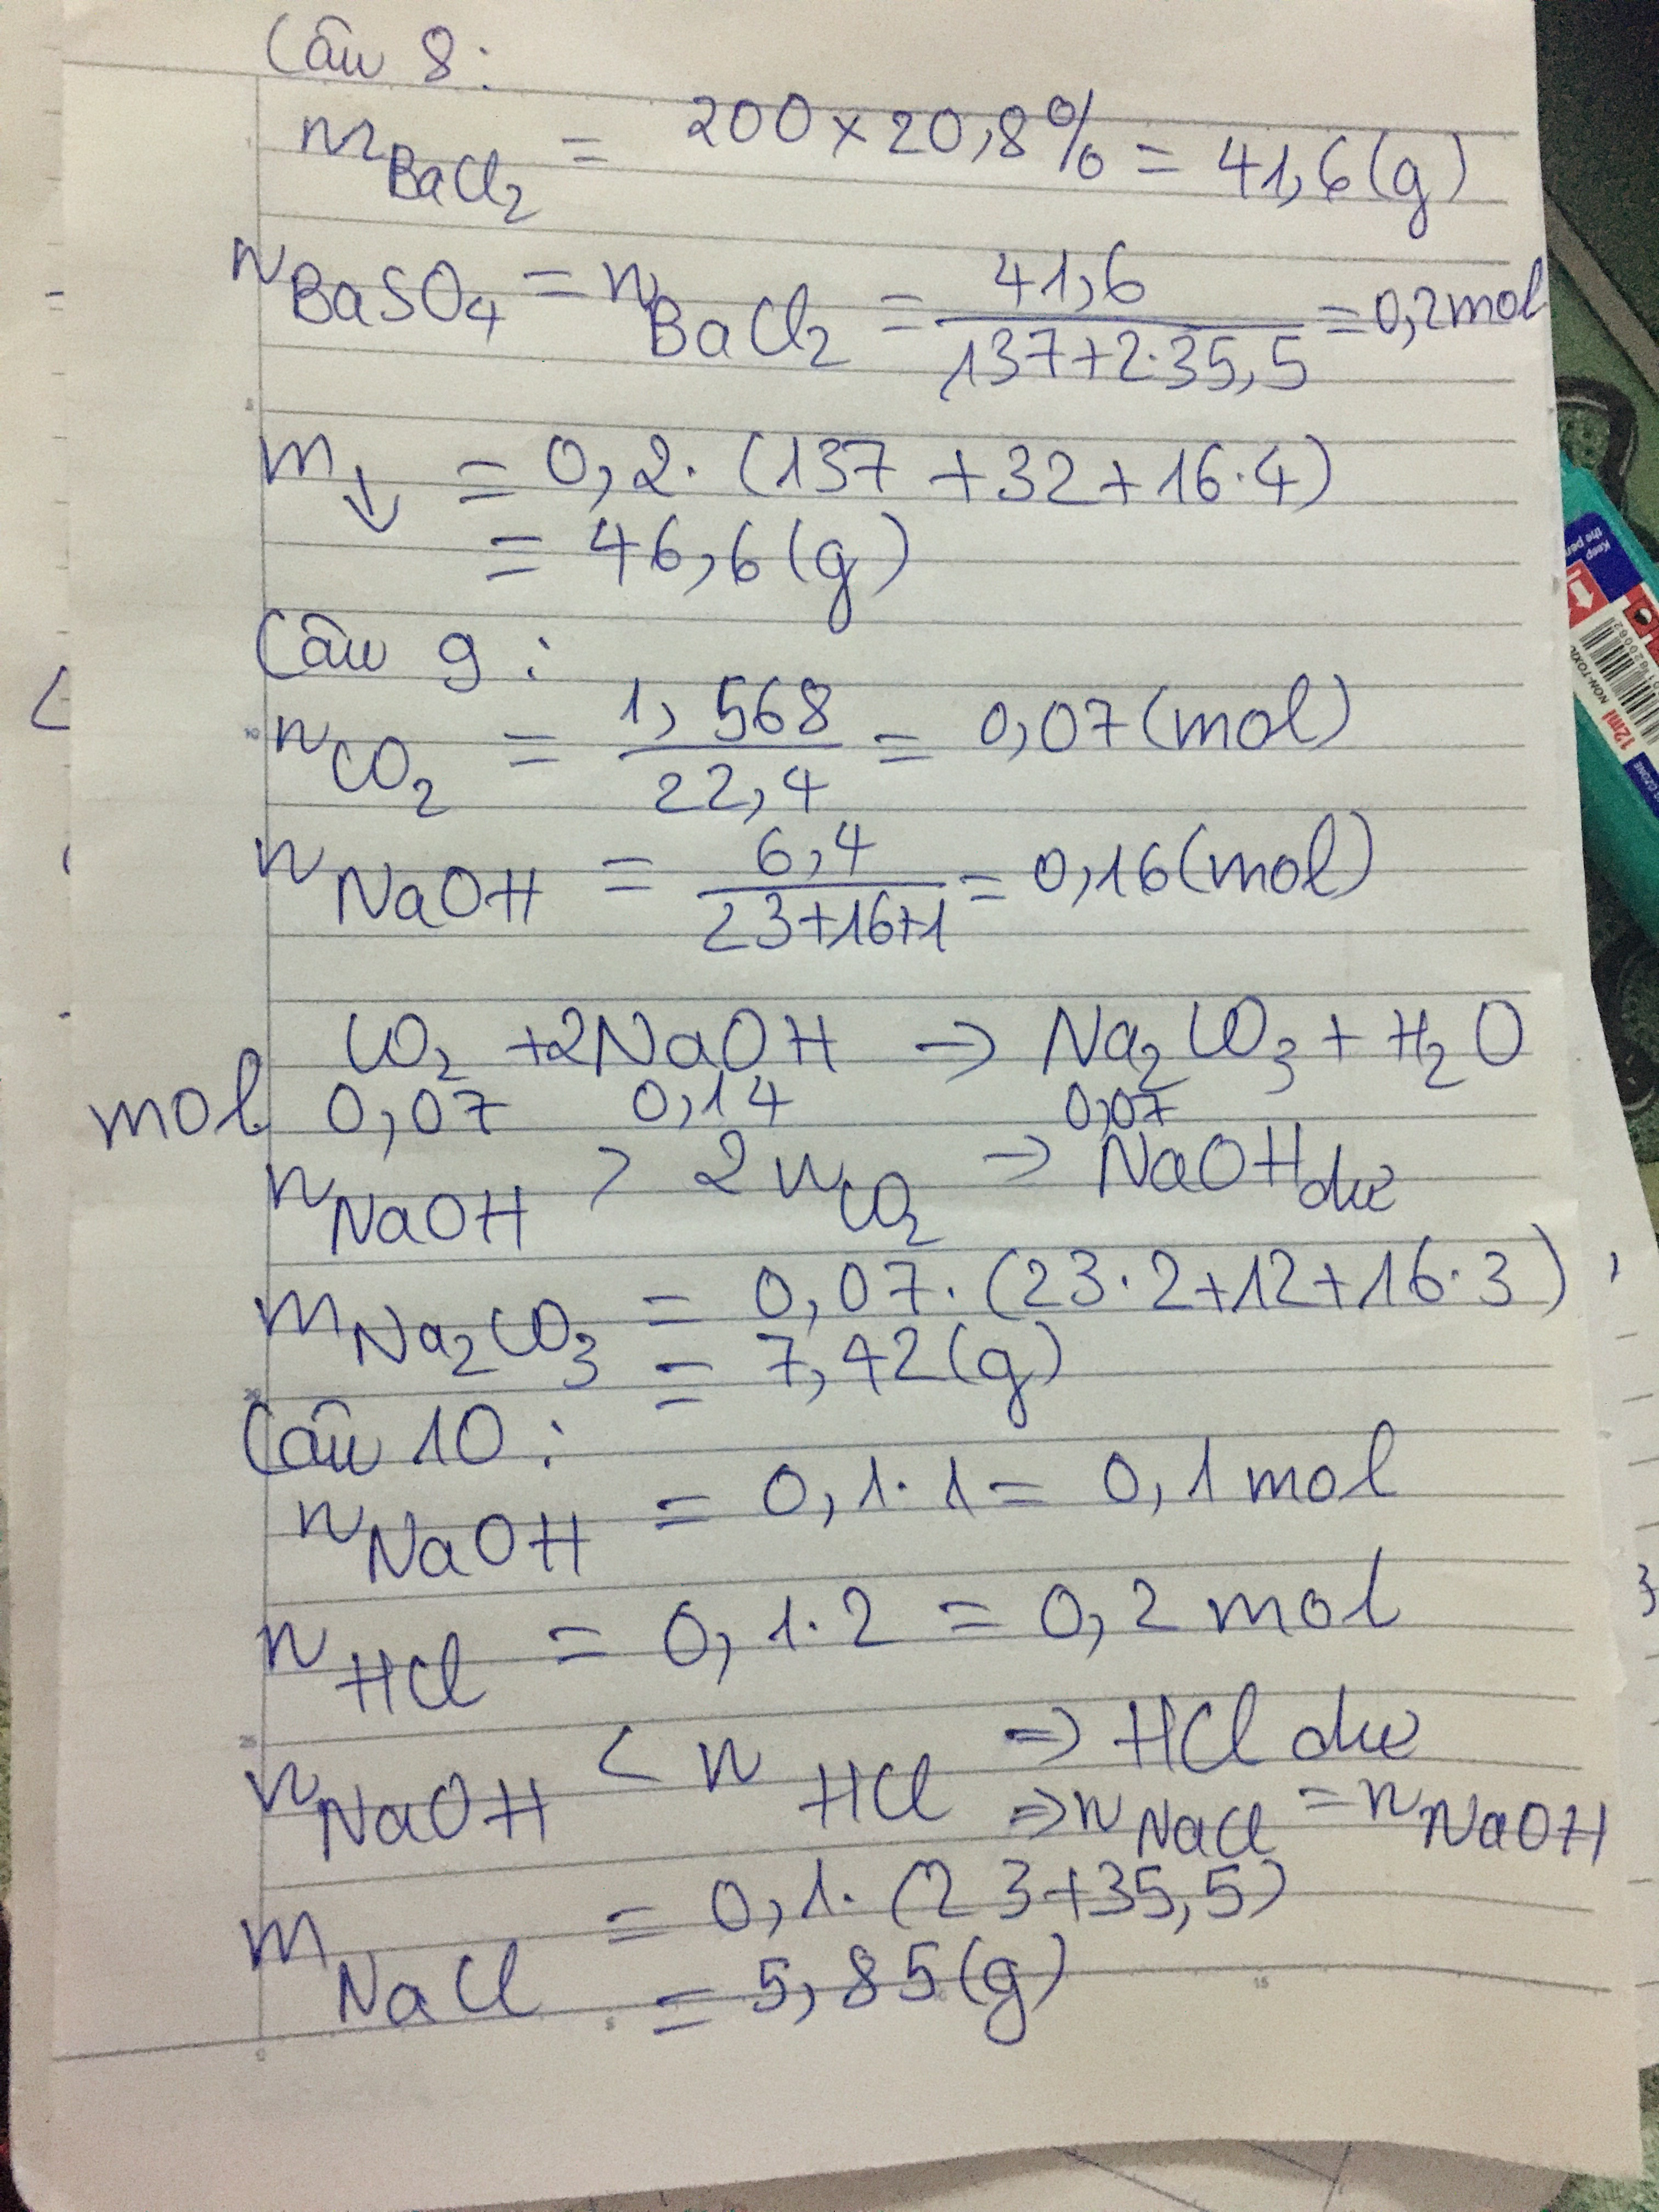 Câu 8:
m BaCl2 = 200 x 20,8% = 41,6 (g)
n BaSO4 = n BaCl2 = 41,6 / 137+2.35,5 = 0,2 mol
m↓ = 0,2. (137 + 32 + 16.4)
= 46,6 (g)
Câu 9:
n CO2 = 1,568 / 22,4 = 0,07 (mol)
n NaOH = 6,4 / 23+16+1 = 0,16 (mol)
CO2 + 2NaOH → Na2CO3 + H2O
mol 0,07 0,14 0,07
n NaOH > 2n CO2 → NaOH dư
m Na2CO3 = 0,07. (23.2+12+16.3)
= 7,42 (g)
Câu 10:
n NaOH = 0,1.1 = 0,1 mol
n HCl = 0,1.2 = 0,2 mol
n NaOH < n HCl ⇒ HCl dư
⇒ n NaCl = n NaOH
m NaCl = 0,1. (23+35,5)
= 5,85 (g)
Keep
NON-TOXIC
12ml